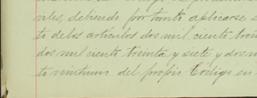 viles, debiendo por tanto aplicarse
to de los artículos dos mil ciento trein
dos mil ciento treinta y siete y dos m
to veintiuno del propio Código en